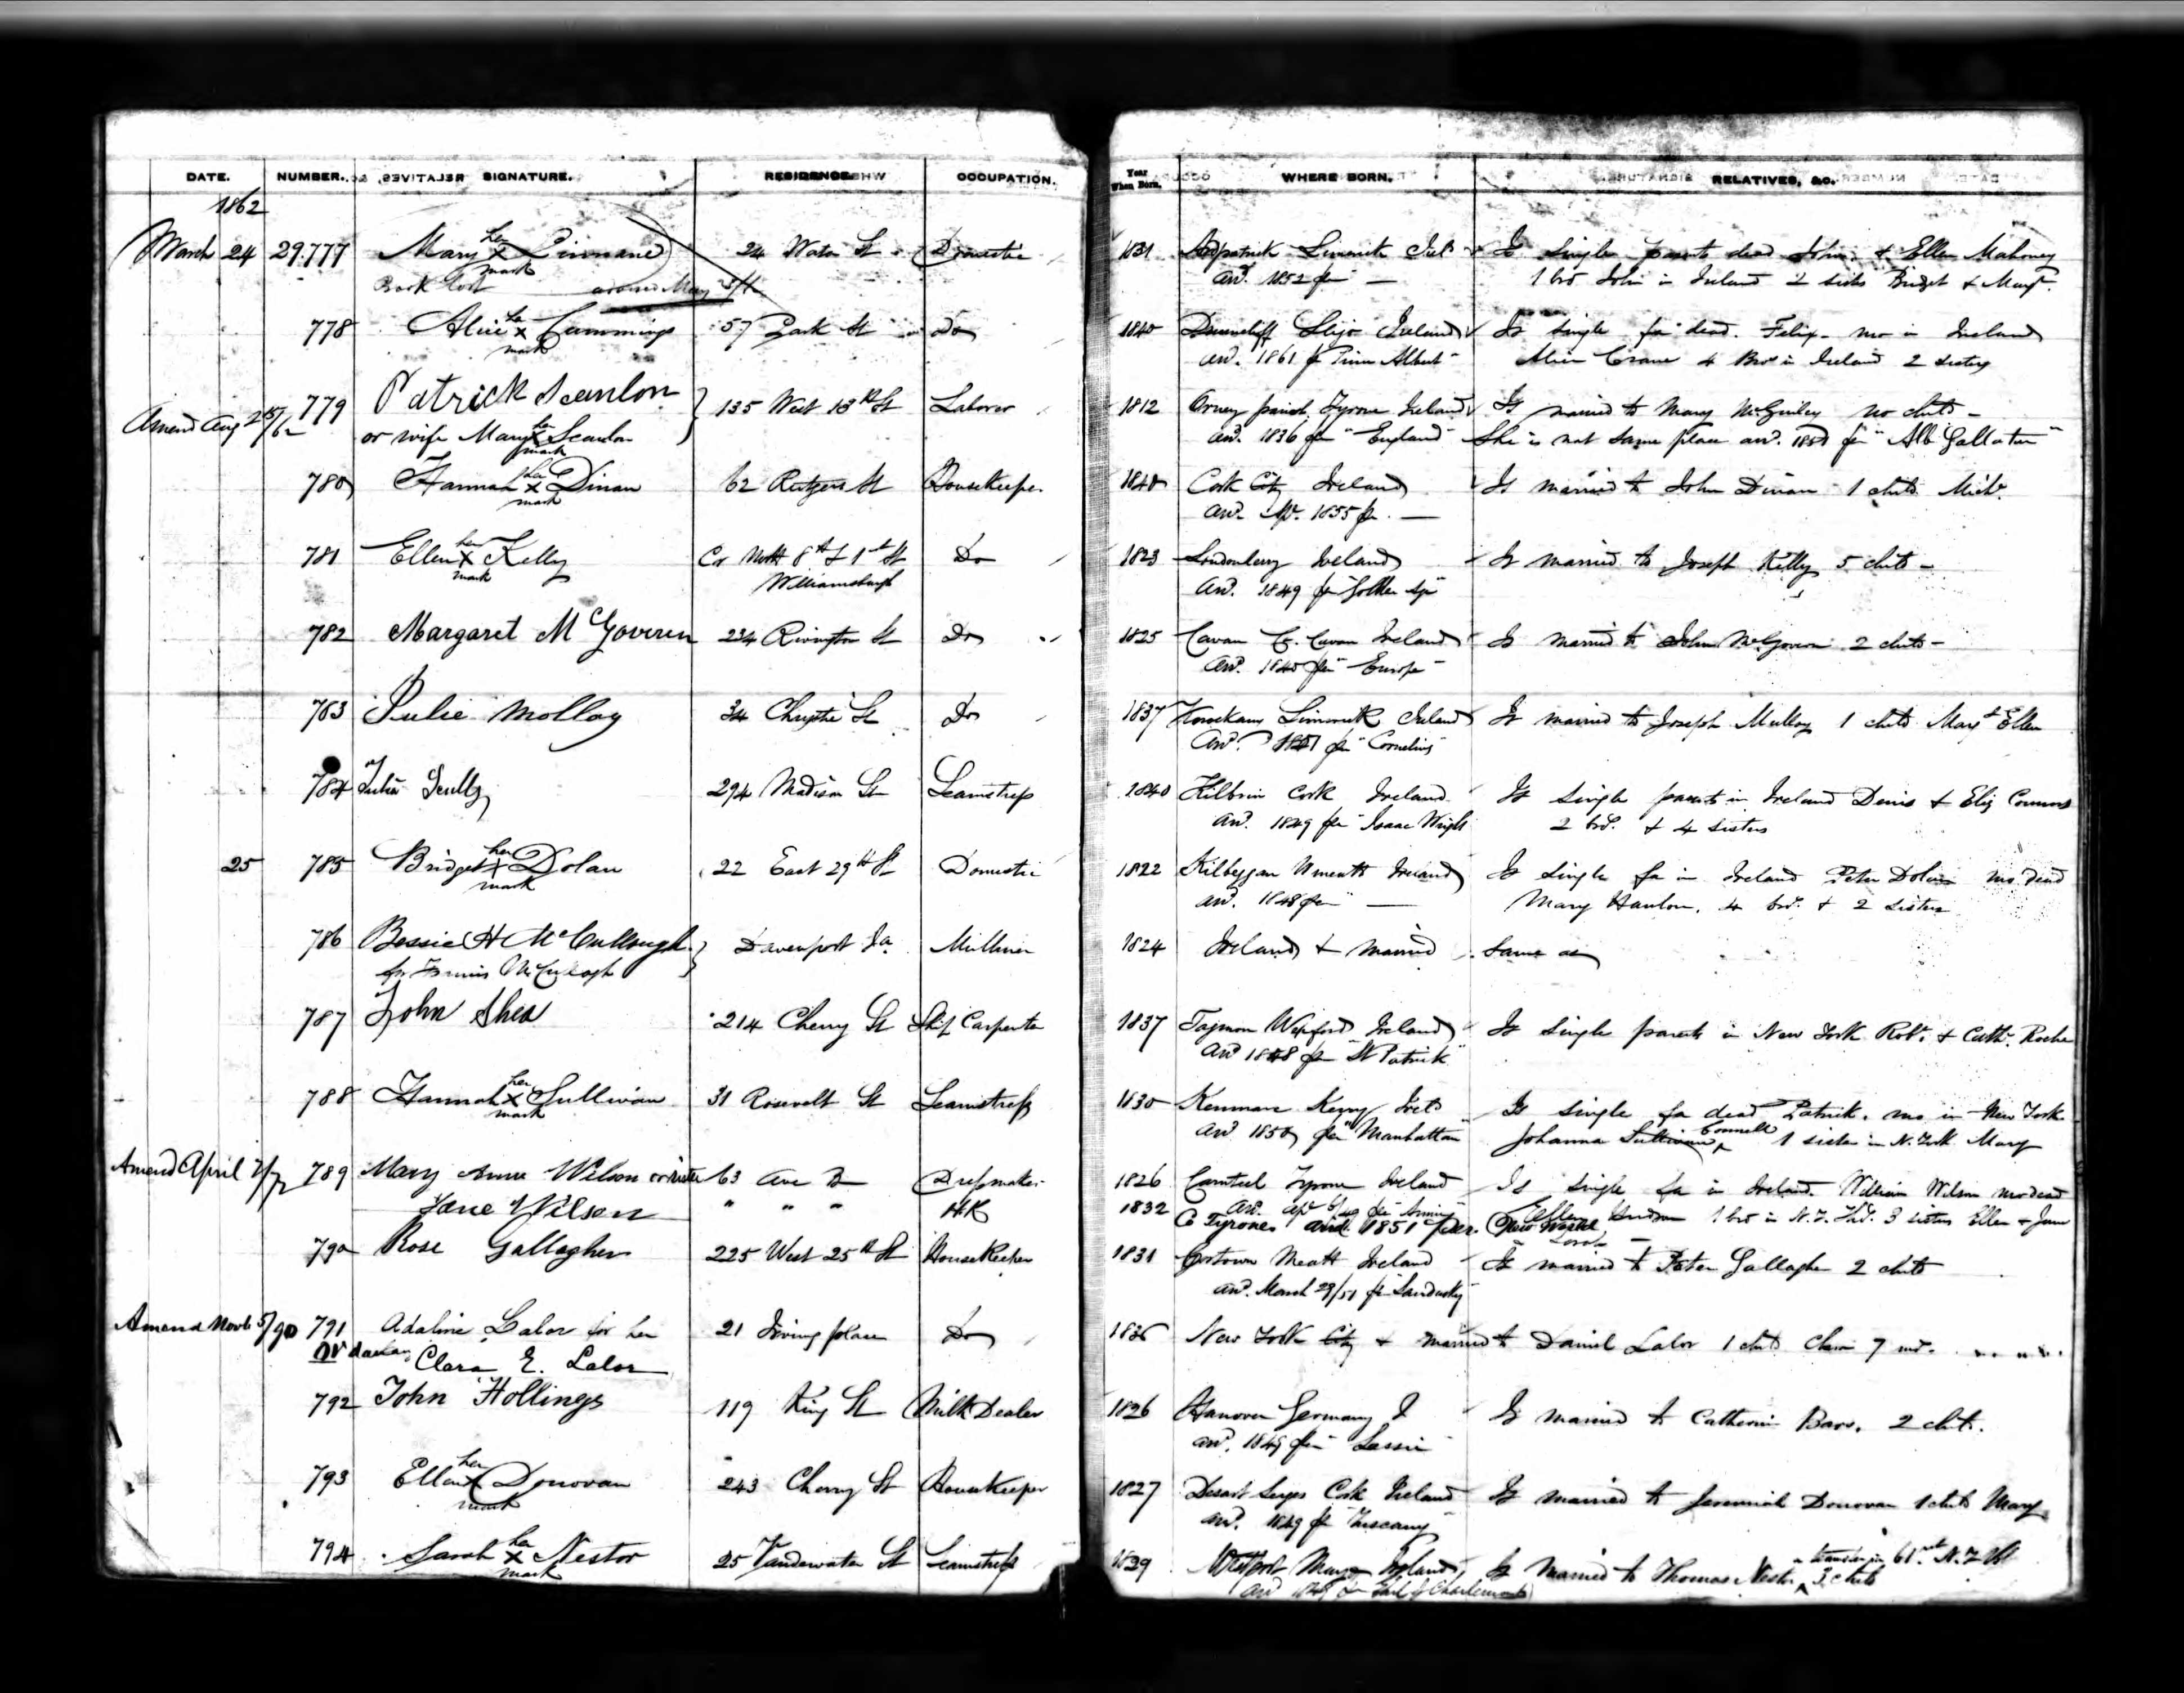 DATE. NUMBER. SIGNATURE. RESIDENCE. OCCUPATION. Year When Born. WHERE BORN. RELATIVES, &C.
1862
March 24 29.777 Mary her x mark 24 Water St Domestic 1831 Ardpatrick Limerick Irel Is single parents dead John & Ellen Mahoney
Book lost arr. 1852 per — 1 bro John in Ireland 2 sists Bridget & Margt.
778 Alice her x mark Cummings 57 Park St Do 1840 Drumcliff Sligo Ireland Is single fa dead. Felix. mo in Ireland
arr. 1861 pr Prince Albert Alice Crane 4 Bros in Ireland 2 sisters
779 Patrick Scanlon 135 West 13th St Laborer 1812 parish Tyrone Ireland Is married to Mary McGinley no chds —
Amend Aug 25/62 or wife Mary her x mark Scanlon arr. 1836 per "England" She is nat same place arr. per "Alb Gallatin"
780 Hannah her x mark Dinan 62 Rutgers St Housekeeper 1840 Cork City Ireland Is married to John Dinan 1 child Michl.
arr. Ap. 1855 pr. —
781 Ellen her x mark Kelly Cor North 8th & 1st St Do 1823 Londonderry Ireland Is married to Joseph Kelly 5 chds —
Williamsburgh arr. 1849 per
782 Margaret McGoveren 234 Rivington St Do 1825 Cavan Co. Cavan Ireland Is married to John McGovern 2 chds —
arr. 1840 per "Europe"
783 Julie Molloy 34 Chrystie St Do 1837 Limerick Ireland Is married to Joseph Mulloy 1 child Margt Ellen
arr. per "Cornelius"
784 Julia Scully 294 Madison St Seamstress 1840 Kilbrin Cork Ireland Is single parents in Ireland Denis & Eliz Connors
arr. 1849 per "Isaac Wright 2 bro. & 4 sisters
25 785 Bridget her x mark Dolan 22 East 29th St Domestic 1822 Kilbeggan Wmeath Ireland Is single fa in Ireland Peter Dolan mo dead
arr. 1848 per — Mary Hanlon. 4 bro. & 2 sisters
786 Bessie H McCullough Davenport Ia Milliner 1824 Ireland & married same as
for Francis McCullogh
787 John Shea 214 Cherry St Ship Carpenter 1837 Tagmon Wexford Ireland Is single parents in New York Robt. & Cath. Roche
arr 1848 per "St Patrick"
788 Hannah her x mark Sullivan 31 Rosevelt St Seamstress 1830 Kenmare Kerry Ireld Is single fa dead Patrick. mo in New York
arr. 1850 per "Manhattan" Johanna Sullivan Connell 1 sister in N. York Mary
Amend April 789 Mary Anne Wilson or sister 63 Ave B Dressmaker 1826 Carnteel Tyrone Ireland Is single fa in Ireland William Wilson mo dead
Jane Wilson " " " HK 1832 Co Tyrone arrd 1851 per 1 bro in N.Y. 3 sisters Ellen & Jane
790 Rose Gallagher 225 West 25th St Housekeeper 1831 Meath Ireland Is married to Peter Gallagher 2 chds
arr. March 29/51 pr "Sandusky"
Amend Novb 5/90 791 Adaline Lalor for her 21 Irving place Do 1836 New York City & married to Daniel Lalor 1 chd Clara 7 mo.
or daur Clara E. Lalor
792 John Hollings 119 King St Milk Dealer 1826 Hanover Germany Is married to Catherine 2 chds.
arr. 1849 per
793 Ellen her x mark Donovan 243 Cherry St Housekeeper 1827 Desart Serges Cork Ireland Is married to Jeremiah Donovan 1 chd Mary
arr. 1849 pr "Tuscany"
794 Sarah her x mark Nestor 25 Vandewater St Seamstress 1839 Westport Mayo Ireland Is married to Thomas Nestor 61st N.Y. Vol
arr 1849 pr Earl of Charlemont